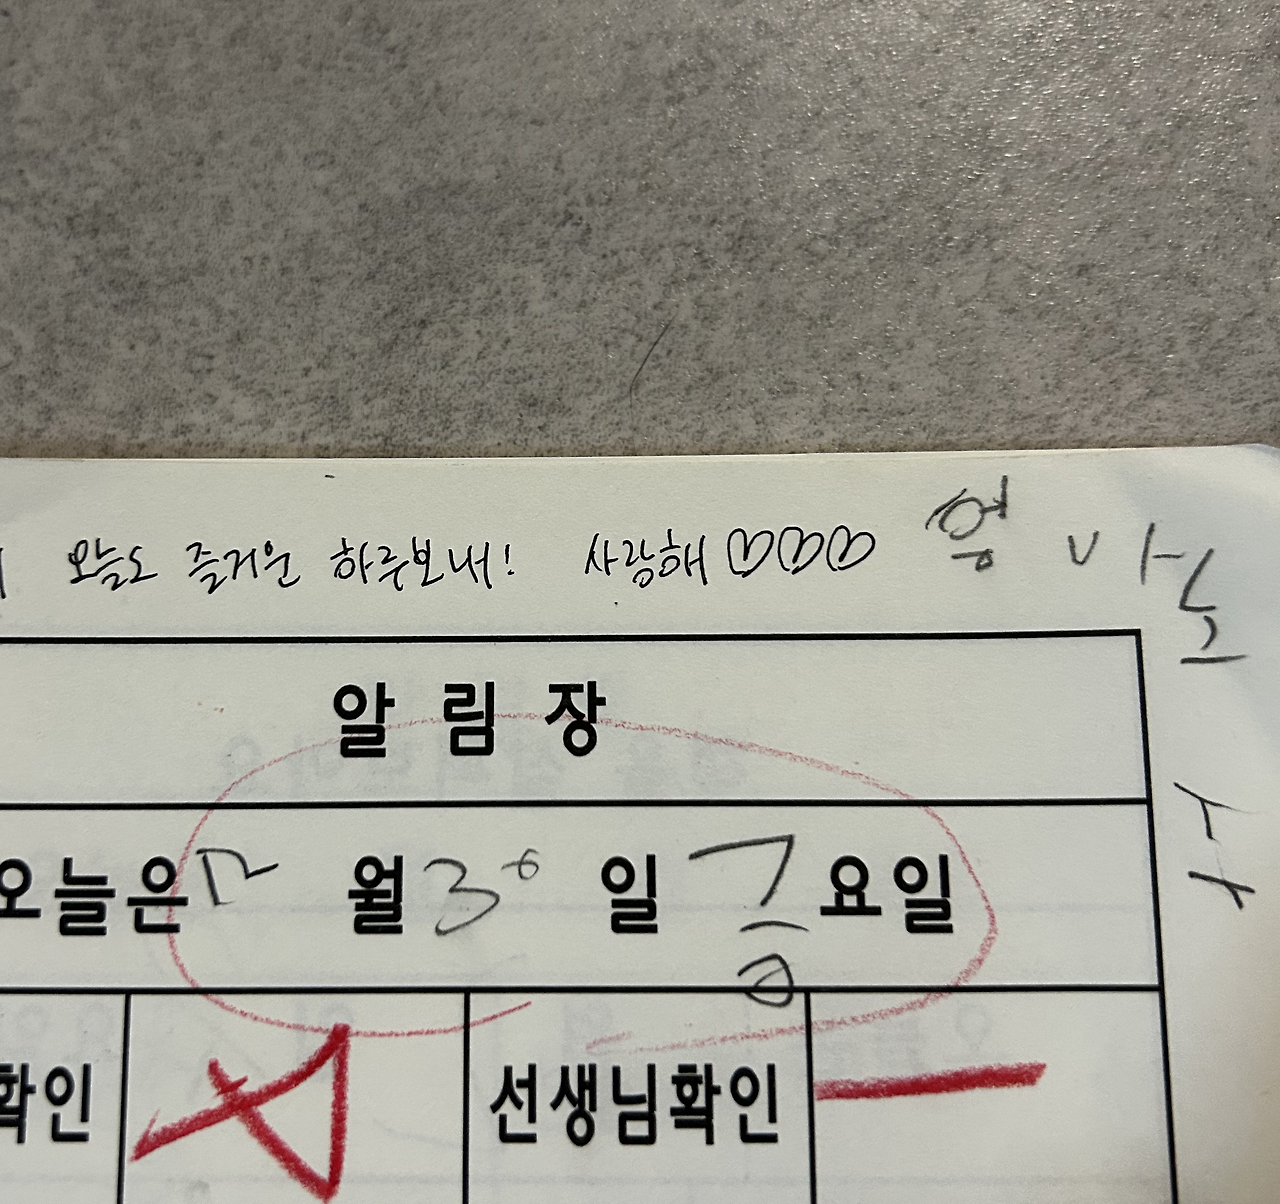 오늘도 즐거운 하루보내! 사랑해 ♡♡♡
알림장
오늘은 12 월 30 일 금 요일
확인 선생님확인